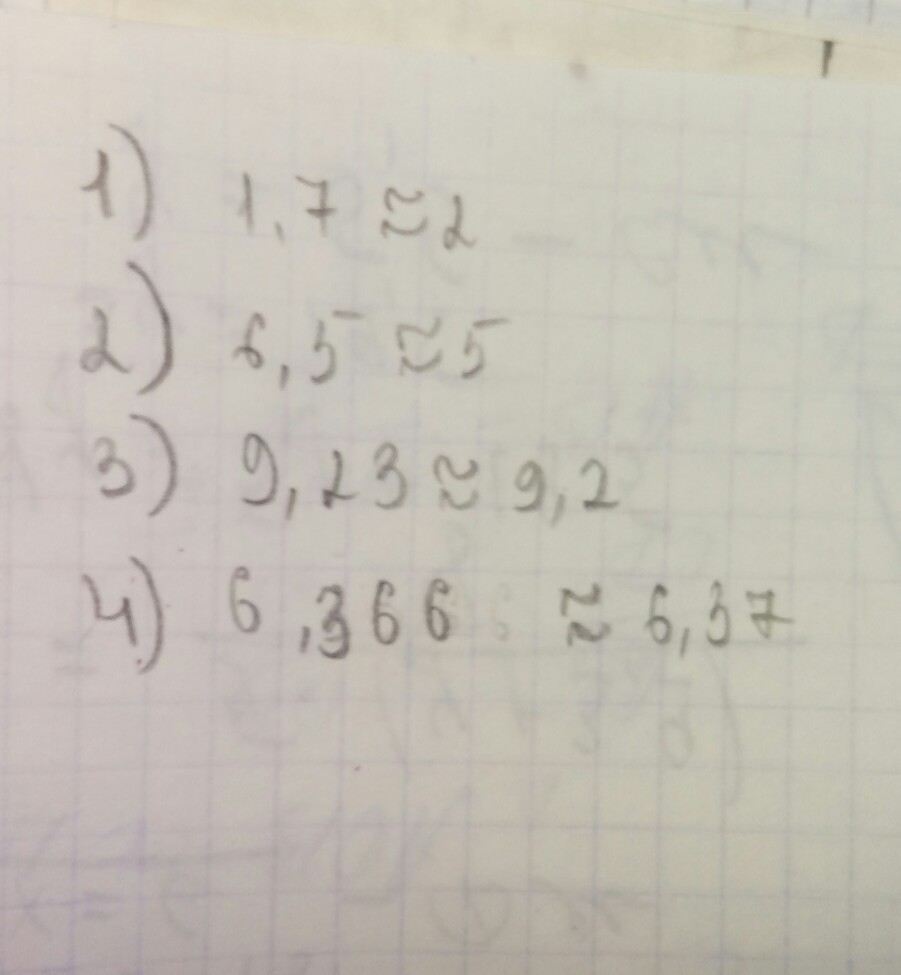 1) 1,7 ≈ 2
2) 6,5 ≈ 5
3) 9,23 ≈ 9,2
4) 6,366 ≈ 6,37